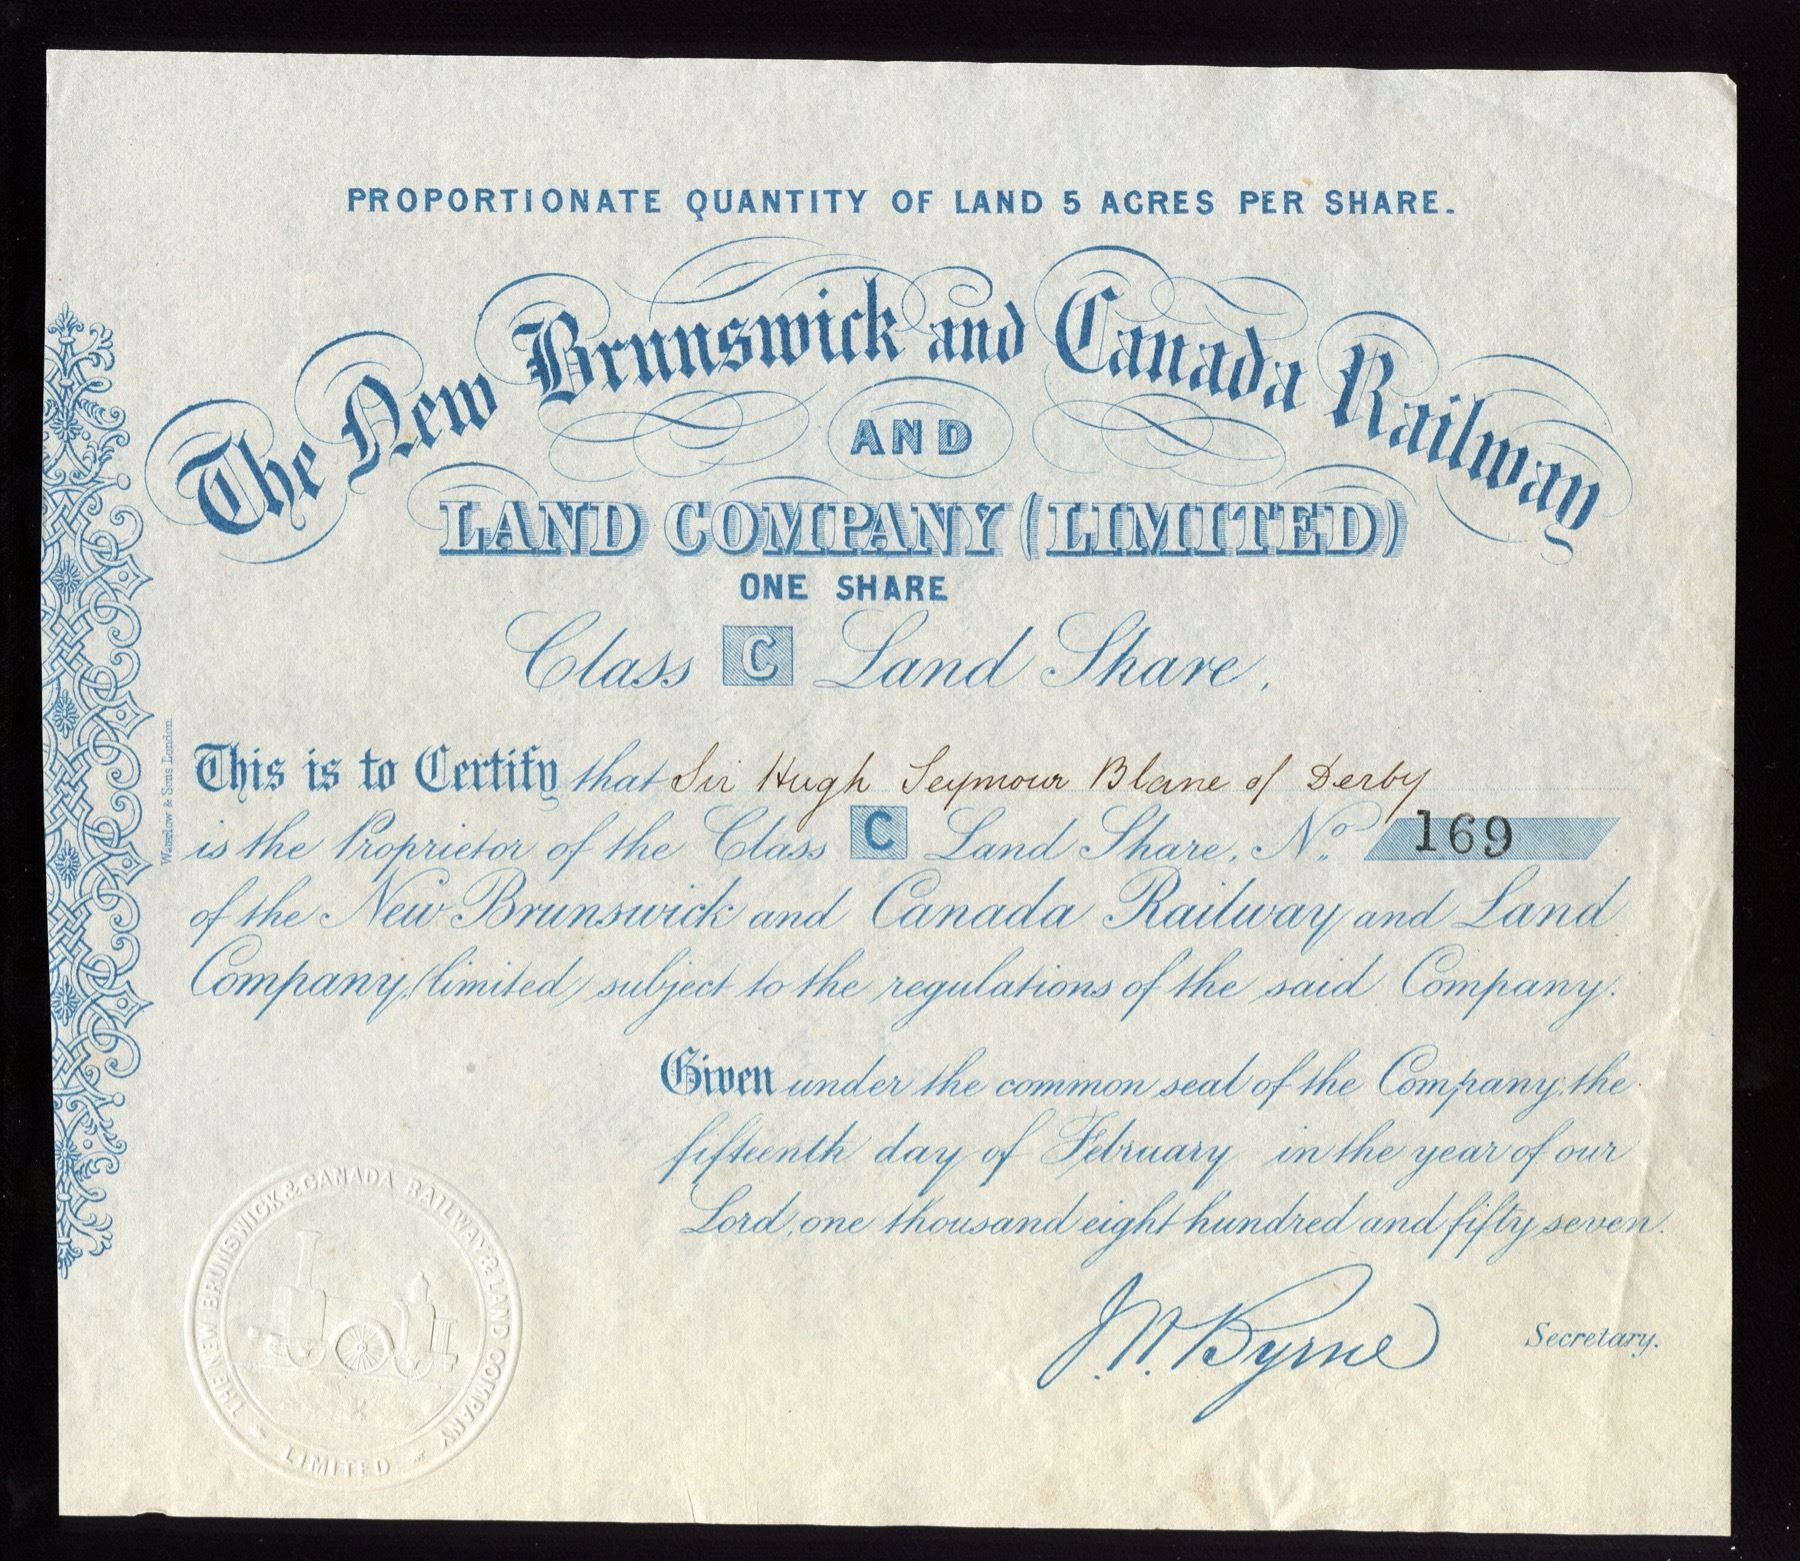 PROPORTIONATE QUANTITY OF LAND 5 ACRES PER SHARE.
The New Brunswick and Canada Railway
AND
LAND COMPANY (LIMITED)
ONE SHARE
Class C Land Share,
This is to Certify that Sir Hugh Seymour Blane of Derby
is the Proprietor of the Class C Land Share, No. 169
of the New Brunswick and Canada Railway and Land
Company, (limited) subject to the regulations of the said Company.
Given under the common seal of the Company, the
fifteenth day of February in the year of our
Lord, one thousand eight hundred and fifty seven.
J. W. Byrne Secretary.
Waterlow & Sons London.
THE NEW BRUNSWICK & CANADA RAILWAY & LAND COMPANY
LIMITED